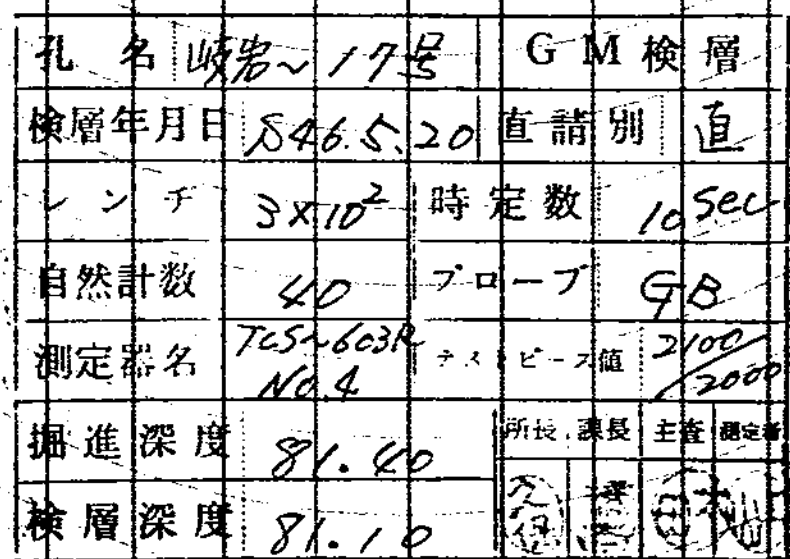 孔名 岐岩~17号 GM検層
検層年月日 S46.5.20 直請別 直
レンチ 3×10² 時定数 10 Sec
自然計数 40 プローブ GB
測定器名 TCS~603R No.4 テストピース値 2100/2000
掘進深度 81.40 所長 課長 主査 測定者
検層深度 81.10